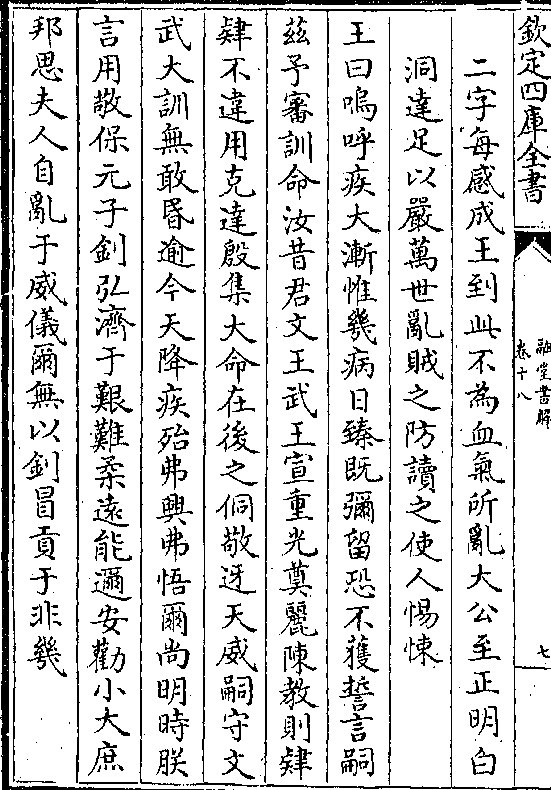 欽定四庫全書
融堂書解
卷十八
七
二字每感成王到此不為血氣所亂大公至正明白
洞達足以嚴萬世亂賊之防讀之使人惕悚
王曰嗚呼疾大漸惟幾病日臻既彌留恐不獲誓言嗣
茲予審訓命汝昔君文王武王宣重光奠麗陳教則肄
肄不違用克達殷集大命在後之侗敬迓天威嗣守文
武大訓無敢昏逾今天降疾殆弗興弗悟爾尚明時朕
言用敬保元子釗弘濟于艱難柔遠能邇安勸小大庶
邦思夫人自亂于威儀爾無以釗冒貢于非幾